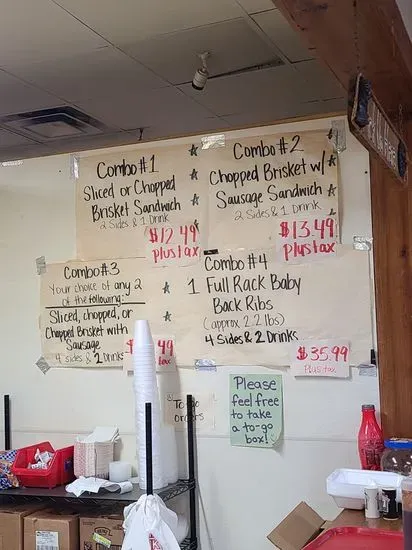 Combo #1
Sliced or Chopped
Brisket Sandwich
2 Sides & 1 Drink
$12.49
plus tax
Combo #2
Chopped Brisket w/
Sausage Sandwich
2 Sides & 1 Drink
$13.49
plus tax
Combo #3
Your choice of any 2
of the following:
Sliced, chopped, or
Chopped Brisket with
Sausage
4 sides & 2 Drinks
49
tax
Combo #4
1 Full Rack Baby
Back Ribs
(approx 2.2 lbs)
4 Sides & 2 Drinks
$35.99
Plus tax
Please
feel free
to take
a to-go
box!
To go
orders